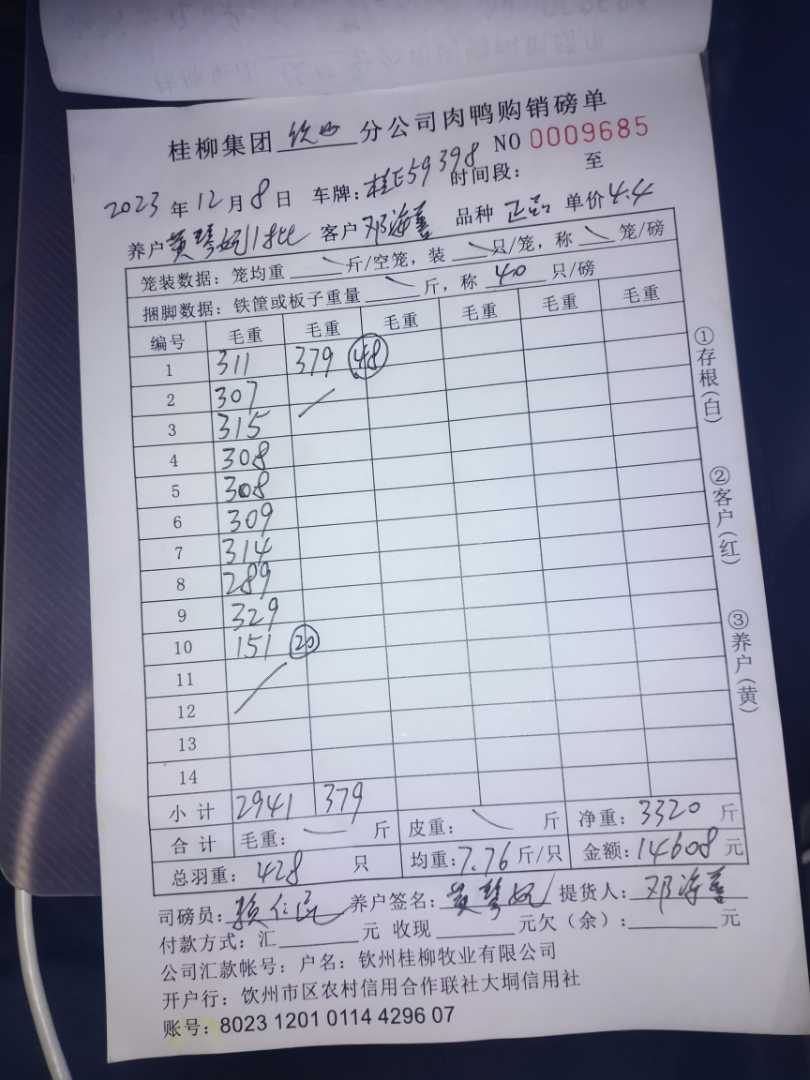 桂柳集团 钦州 分公司肉鸭购销磅单
NO 0009685
2023 年 12 月 8 日 车牌：桂E59398 时间段： 至
养户 黄琴妃11批 客户 邓海善 品种 正品 单价 4.4
笼装数据：笼均重 \ 斤/空笼，装 \ 只/笼，称 \ 笼/磅
捆脚数据：铁筐或板子重量 \ 斤，称 40 只/磅
编号 毛重 毛重 毛重 毛重 毛重 毛重
1 311 379 48
2 307
3 315
4 308
5 308
6 309
7 314
8 289
9 329
10 151 20
11
12
13
14
小 计 2941 379
合 计 毛重： — 斤 皮重： \ 斤 净重：3320 斤
总羽重：428 只 均重：7.76 斤/只 金额：14608 元
司磅员： 养户签名：黄琴妃 提货人：邓海善
付款方式：汇 元 收现 元欠（余）： 元
公司汇款帐号：户名：钦州桂柳牧业有限公司
开户行：饮州市区农村信用合作联社大垌信用社
账号：8023 1201 0114 4296 07
①存根（白）
②客户（红）
③养户（黄）